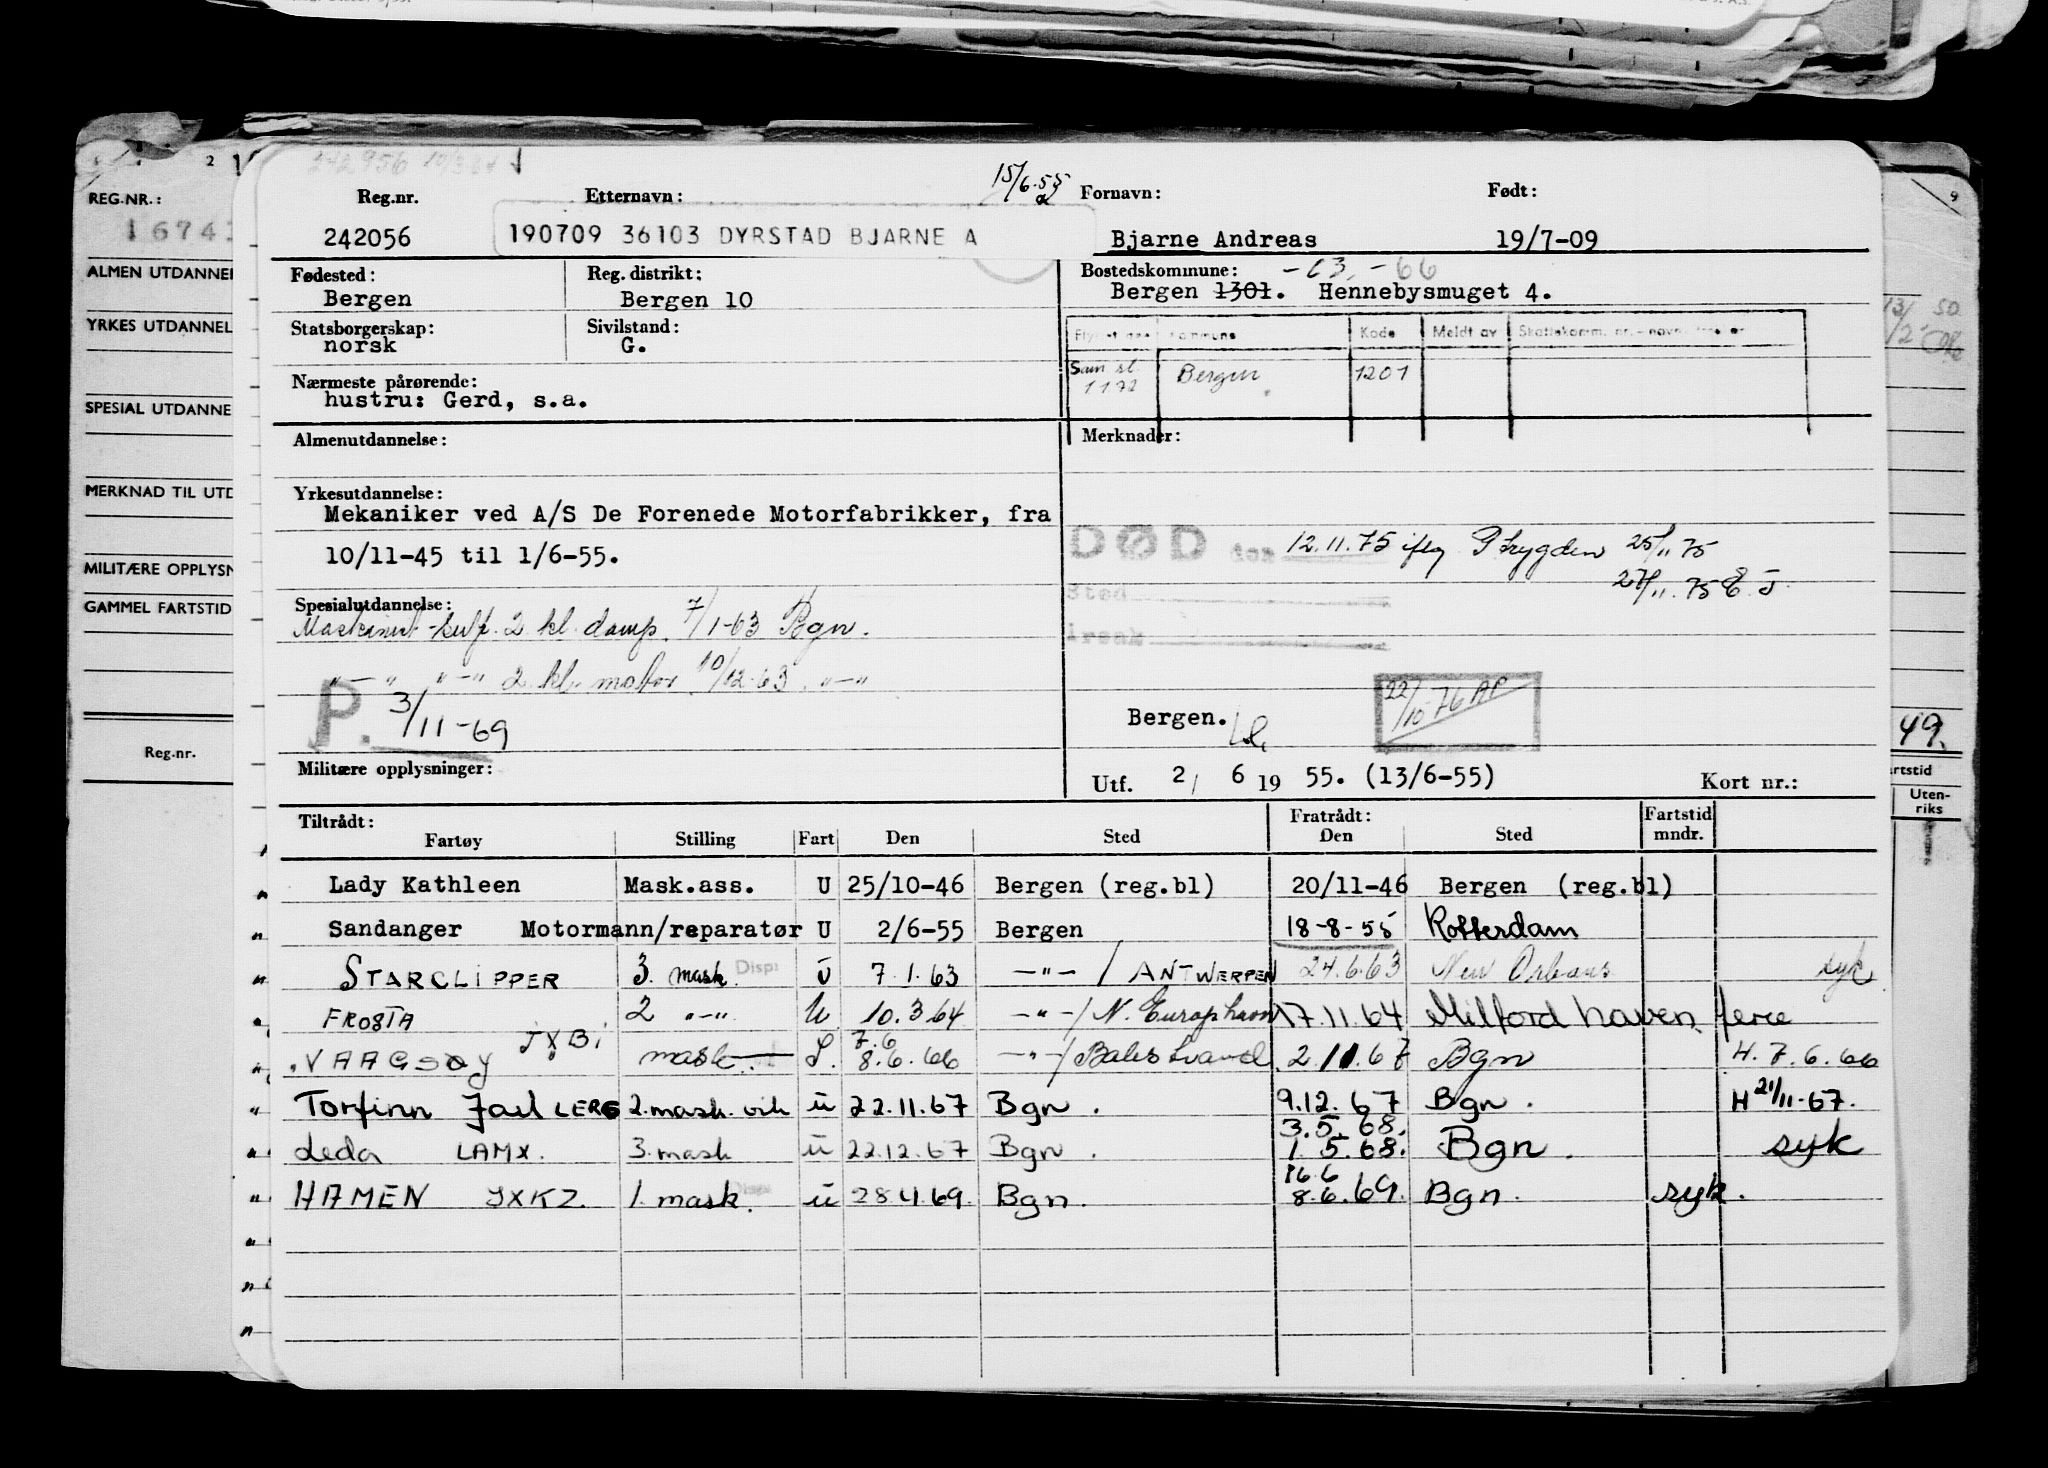 2
REG.NR.:
1674
ALMEN UTDANNEL
YRKES UTDANNEL
SPESIAL UTDANNE
MERKNAD TIL UTD
MILITÆRE OPPLYSN
GAMMEL FARTSTID
Reg.nr.
9
49.
Uten-
riks
242956
Reg.nr. Etternavn: 15/6.55 Fornavn: Født:
242056 190709 36103 DYRSTAD BJARNE A Bjarne Andreas 19/7-09
Fødested: Reg. distrikt: Bostedskommune: -63, -66
Bergen Bergen 10 Bergen 1301. Hennebysmuget 4.
Statsborgerskap: Sivilstand:
norsk G.
Kode Meldt av
Nærmeste pårørende: Sam st. Bergen 1201
hustru: Gerd, s.a. 1172
Almenutdannelse: Merknader:
Yrkesutdannelse:
Mekaniker ved A/S De Forenede Motorfabrikker, fra
10/11-45 til 1/6-55.
DØD den 12.11.75 iflg P trygden 25/11 75
27/11.75
Sted
Årsak
Spesialutdannelse:
Maskinist-sert. 2 kl. damp. 7/1-63 Bgn.
-"- " "-" 2 kl. motor 10/12-63. "-"
P. 3/11-69
Bergen. 22/10 76 AP
Militære opplysninger: Utf. 2/ 6 19 55. (13/6-55) Kort nr.:
Tiltrådt: Fratrådt: Fartstid
Fartøy Stilling Fart Den Sted Den Sted mndr.
Lady Kathleen Mask.ass. U 25/10-46 Bergen (reg.bl) 20/11-46 Bergen (reg.bl)
Sandanger Motormann/reparatør U 2/6-55 Bergen 18-8-55 Rotterdam
STARCLIPPER 3. mask. Disp: U 7.1.63 -"- / ANTWERPEN 24.6.63 New Orleans syk
FROSTA 2 "-" U 10.3.64 -"- / N. Europ havn 17.11.64 Milford haven ferie
VAAGSØY JXBI mask. L. 7.6 8.6.66 -"- / Balestrand 2.11.67 Bgn H. 7.6.66
Torfinn Jarl LERG 2. mask. vik ü 22.11.67 Bgn. 9.12.67 Bgn. H 21/11-67.
Leda LAMX. 3. mask ü 22.12.67 Bgn. 3.5.68. 1.5.68. Bgn. syk
HAMEN JXKZ. 1. mask. Disp: ü 28.4.69. Bgn. 16.6 8.6.69. Bgn. syk.